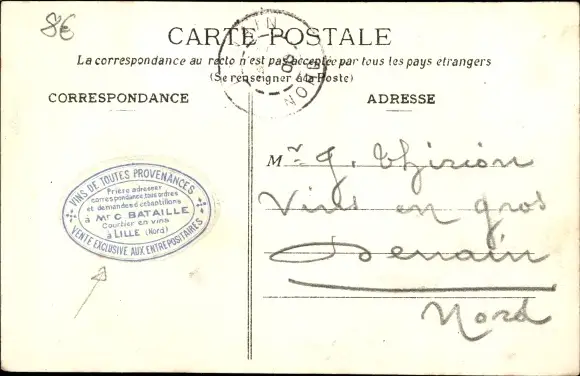 8€
CARTE POSTALE
La correspondance au recto n'est pas acceptée par tous les pays étrangers
(Se renseigner à la Poste)
CORRESPONDANCE
ADRESSE
VINS DE TOUTES PROVENANCES
Prière adresser
correspondance, tous ordres
et demandes d'échantillons
à Mr C. BATAILLE
Courtier en vins
à LILLE (Nord)
VENTE EXCLUSIVE AUX ENTREPOSITAIRES
Mr J. Thirion
Vins en gros
Denain
Nord
NORD